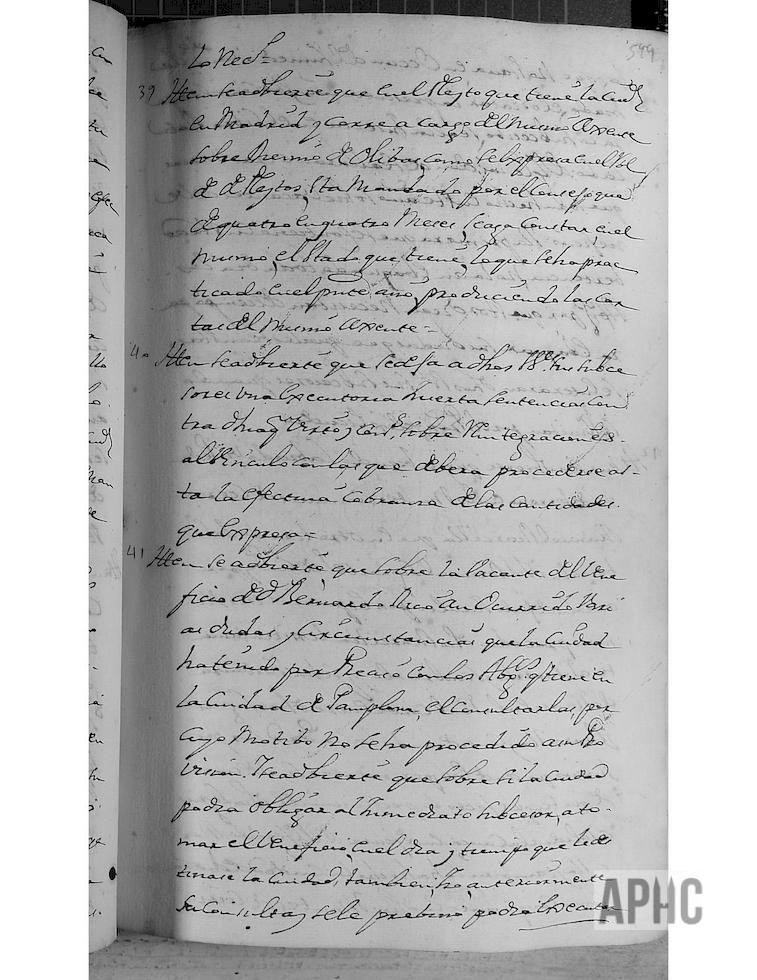 599
lo Neces.º
39 Iten se adbierte que en el Pleyto que tiene la Ciud.
en Madrid y Corre a Cargo del mismo Axente
sobre Diezmo de Olibas, como se Expresa en el Vol
de Pleytos, Esta Mandado por el Consejo que
de quatro en quatro Meses, se aga Constar en el
mismo, el Estado que tiene, lo que se ha prac
ticado en el pnte año, produciendo las Car
tas del mismo Axente =
40 Iten se adbierte que se deja a dhos S.res sus subce
sores una Executoria inserta Sentencias Con
tra sobre Reintegraciones
al Vinculo con las que debera procederse as-
ta la efectiva Cobranza de las Cantidades
que Expresa =
41 Iten se adbierte que sobre la Vacante del Vene
ficio de D.n Bernardo Ricó an Ocurrido Vari
as dudas y Circunstancias que la Ciudad
ha tenido por Preciso con los Abg.dos q.e tiene en
la Ciudad de Pamplona, el Consultarlas, por
Cuyo Motibo No se ha procedido a su Pro
vision. Y se adbierte que sobre si la Ciudad
podra obligar al Inmediato subcesor, a to-
mar el Veneficio en el dia y tiempo que le des
tinase la Ciudad, tambien
Su Consulta y se le prebino podra Executar
APHC